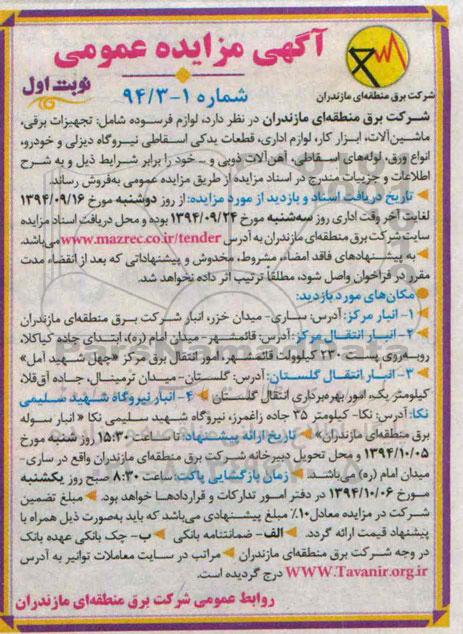 آگهی مزایده عمومی
شماره ۱-۹۴/۳
نوبت اول
شرکت برق منطقه‌ای مازندران
شرکت برق منطقه‌ای مازندران در نظر دارد، لوازم فرسوده شامل: تجهیزات برقی،
ماشین‌آلات، ابزار کار، لوازم اداری، قطعات یدکی اسقاطی نیروگاه دیزلی و خودرو،
انواع ورق، لوله‌های اسقاطی، آهن‌آلات ذوبی و ... خود را برابر شرایط ذیل و به شرح
اطلاعات و جزییات مندرج در اسناد مزایده از طریق مزایده عمومی به‌فروش رساند.
تاریخ دریافت اسناد و بازدید از مورد مزایده: از روز دوشنبه مورخ ۱۳۹۴/۰۹/۱۶
لغایت آخر وقت اداری روز سه‌شنبه مورخ ۱۳۹۴/۰۹/۲۴ بوده و محل دریافت اسناد مزایده
سایت شرکت برق منطقه‌ای مازندران به آدرس www.mazrec.co.ir/tender می‌باشد.
به پیشنهادهای فاقد امضاء، مشروط، مخدوش و پیشنهاداتی که بعد از انقضاء مدت
مقرر در فراخوان واصل شود، مطلقاً ترتیب اثر داده نخواهد شد.
مکان‌های مورد بازدید:
۱- انبار مرکز: آدرس: ساری- میدان خزر، انبار شرکت برق منطقه‌ای مازندران
۲- انبار انتقال مرکز: آدرس: قائمشهر- میدان امام (ره)، ابتدای جاده کیاکلا،
روبه‌روی پست ۲۳۰ کیلوولت قائمشهر، امور انتقال برق مرکز «چهل شهید آمل»
۳- انبار انتقال گلستان: آدرس: گلستان- میدان ترمینال، جاده آق‌قلا،
کیلومتر یک، امور بهره‌برداری انتقال گلستان ۴- انبار نیروگاه شهید سلیمی
نکا: آدرس: نکا- کیلومتر ۲۵ جاده زاغمرز، نیروگاه شهید سلیمی نکا « انبار سوله
برق منطقه‌ای مازندران» تاریخ ارائه پیشنهاد: تا ساعت ۱۵:۳۰ روز شنبه مورخ
۱۳۹۴/۱۰/۰۵ و محل تحویل دبیرخانه شرکت برق منطقه‌ای مازندران واقع در ساری-
میدان امام (ره) می‌باشد. زمان بازگشایی پاکت: ساعت ۸:۳۰ صبح روز یکشنبه
مورخ ۱۳۹۴/۱۰/۰۶ در دفتر امور تدارکات و قراردادها خواهد بود. مبلغ تضمین
شرکت در مزایده معادل ۱۰٪ مبلغ پیشنهادی می‌باشد که باید به‌صورت ذیل همراه با
پیشنهاد قیمت ارائه گردد. الف- ضمانتنامه بانکی ب- چک بانکی عهده بانک
در وجه شرکت برق منطقه‌ای مازندران مراتب در سایت معاملات توانیر به آدرس
WWW.Tavanir.org.ir درج گردیده است.
روابط عمومی شرکت برق منطقه‌ای مازندران